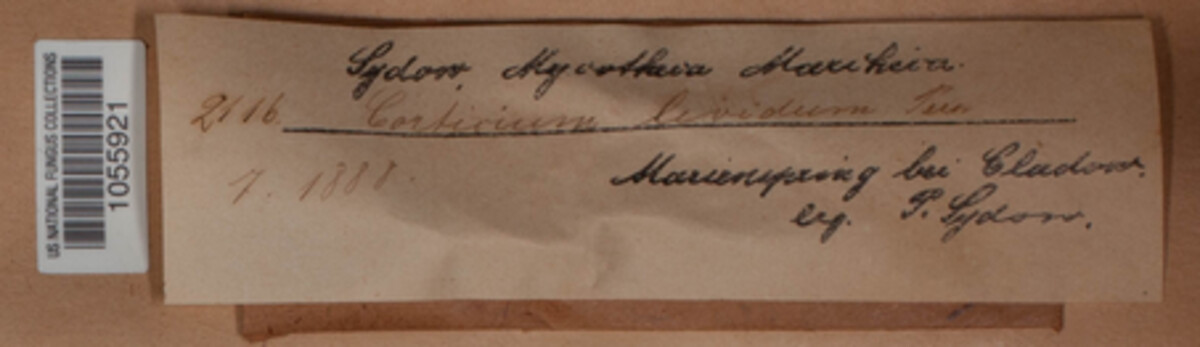 US NATIONAL FUNGUS COLLECTIONS
1055921
Sydow, Mycotheca Marchica.
2116. Corticium lividum Pers
7. 1888.
Marienspring bei Cladow.
leg. P. Sydow.